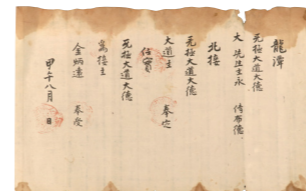 龍潭
无極大道大德
大先生主永侍布德
北接
无極大道大德
大道主 奉定
信實
无極大道大德
舊接主
金炳遠 奉受
甲午八月 日